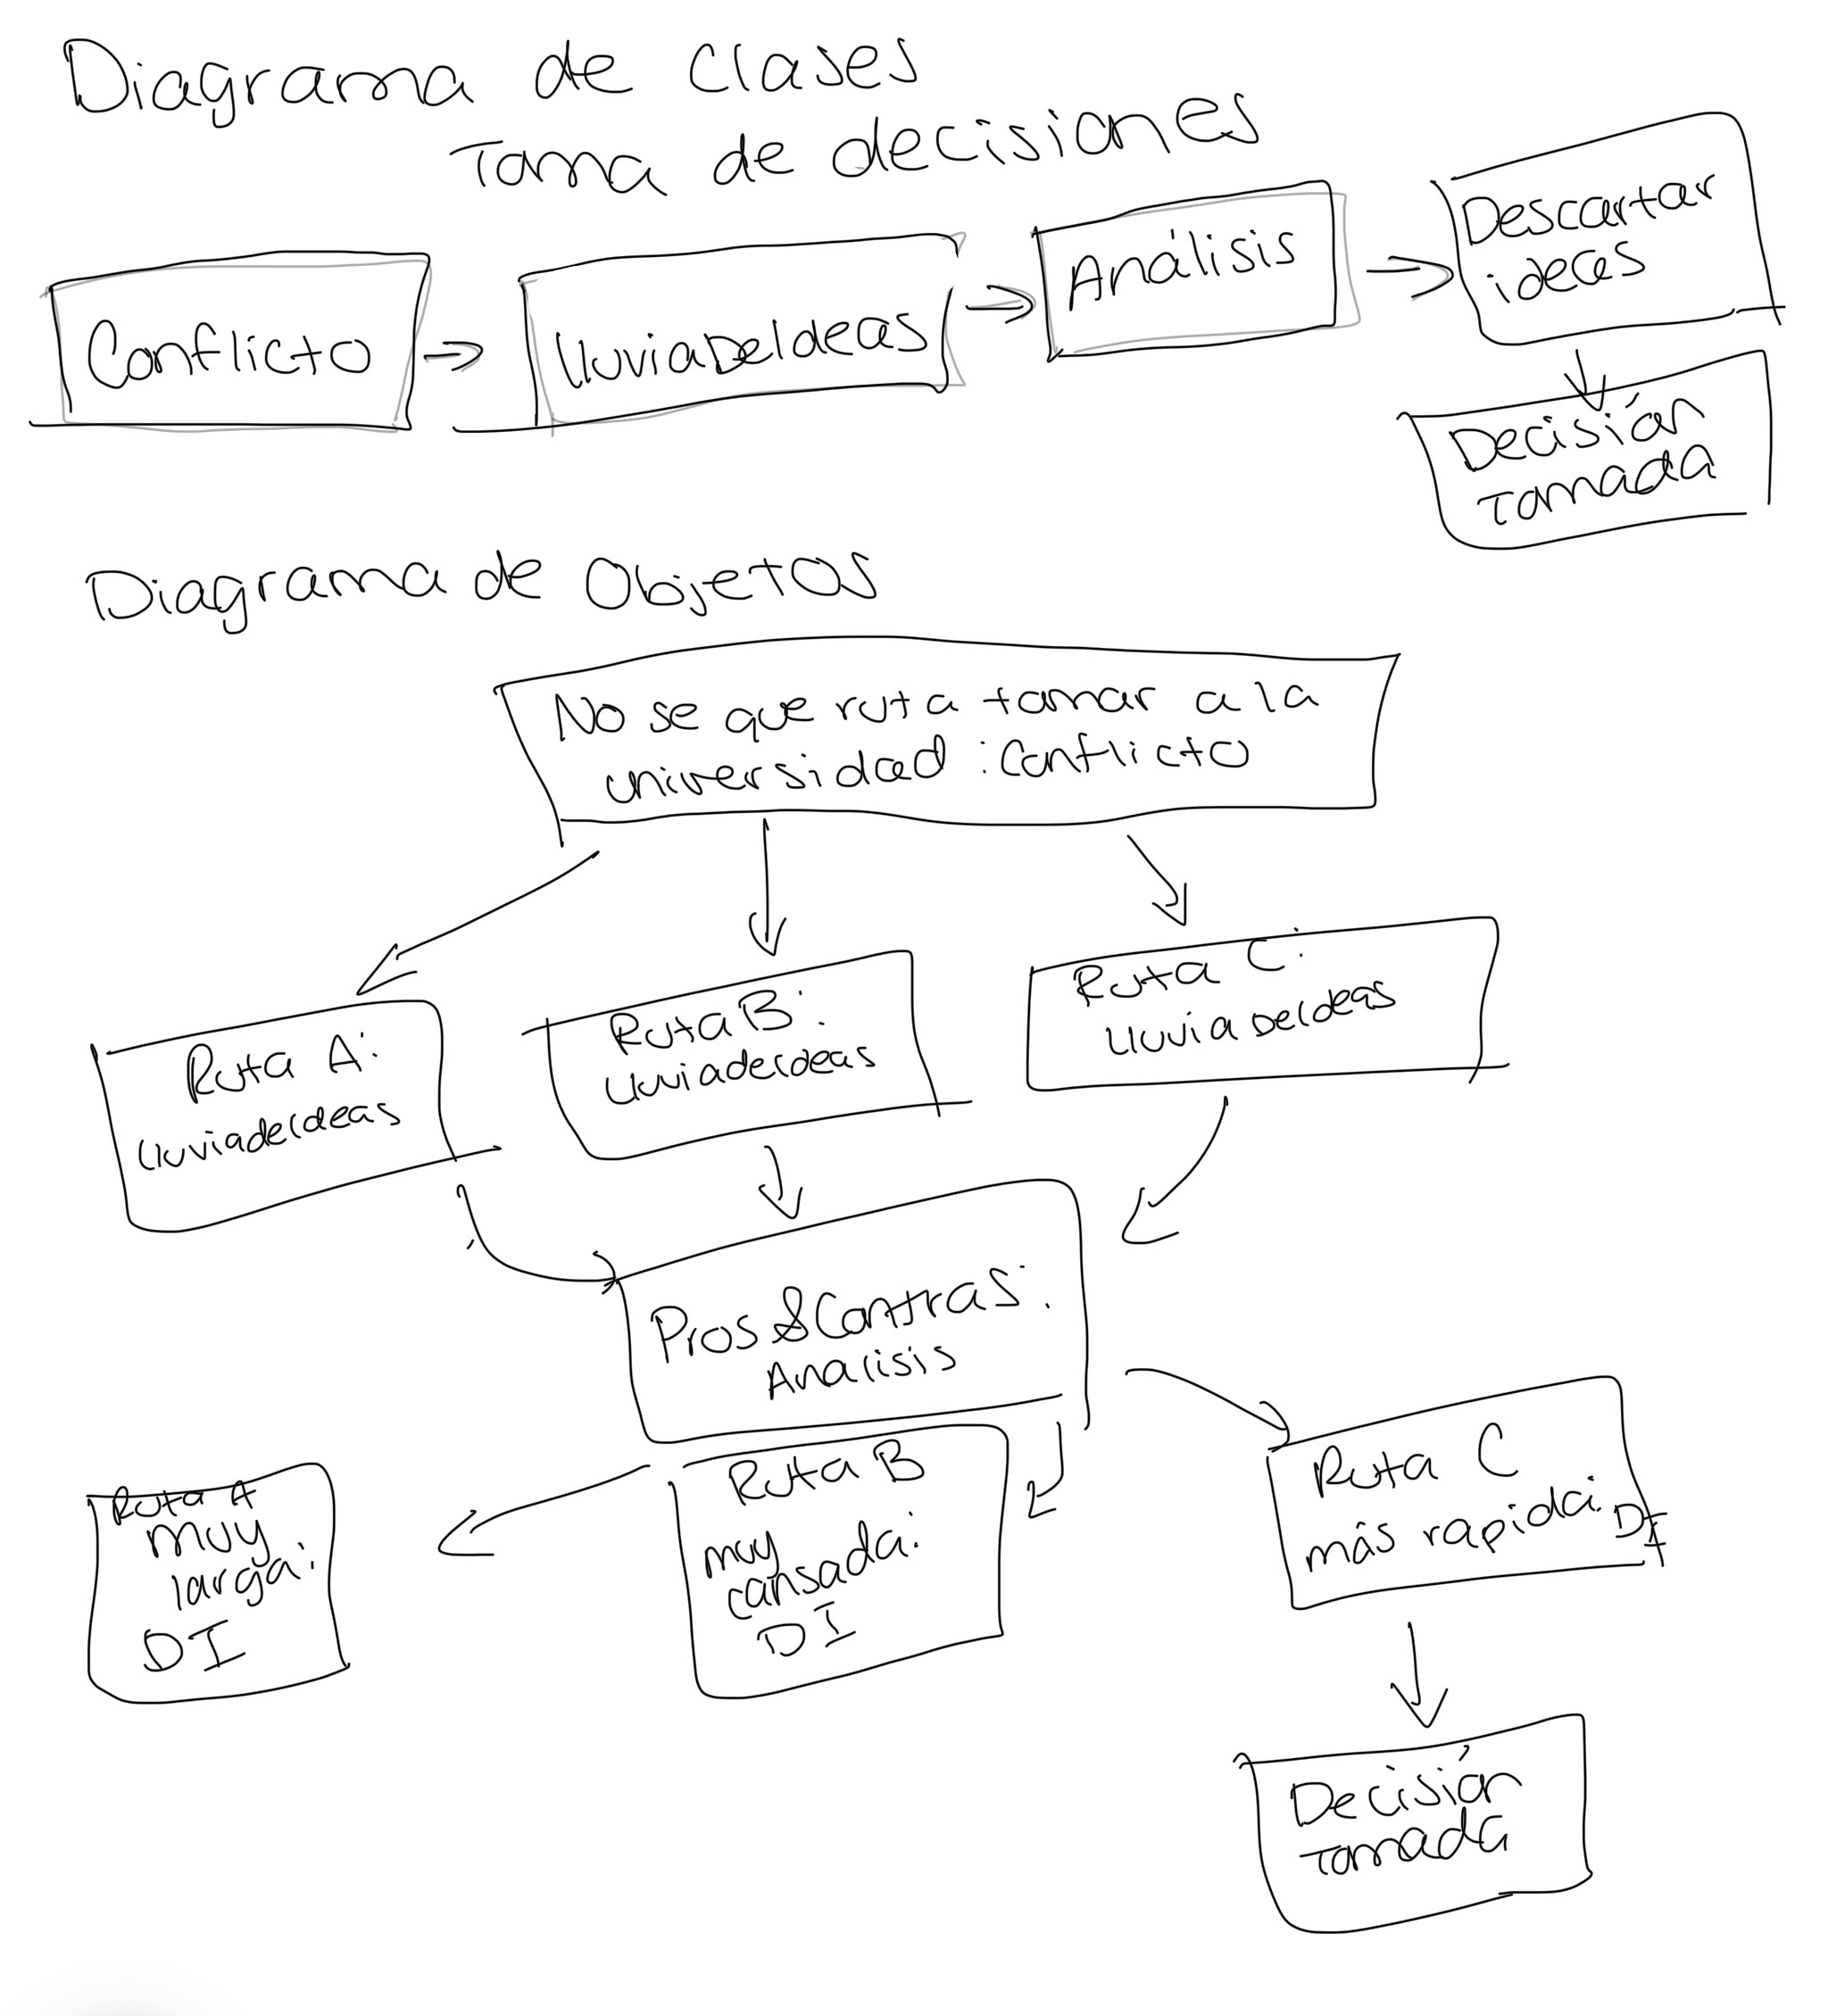 Diagrama de Clases
Toma de decisiones
Conflicto
lluviaDeIdeas
Análisis
Descartar
ideas
Decisión
Tomada
Diagrama de Objetos
No se que ruta tomar a la
universidad : Conflicto
Ruta A:
lluviadeIdeas
Ruta B:
lluviadeideas
Ruta C:
lluviaDeIdeas
Pros&Contras:
Analisis
Ruta A
muy
larga:
DI
Ruta B
muy
cansada:
DI
Ruta C
más rapida: DI
Decisión
Tomada